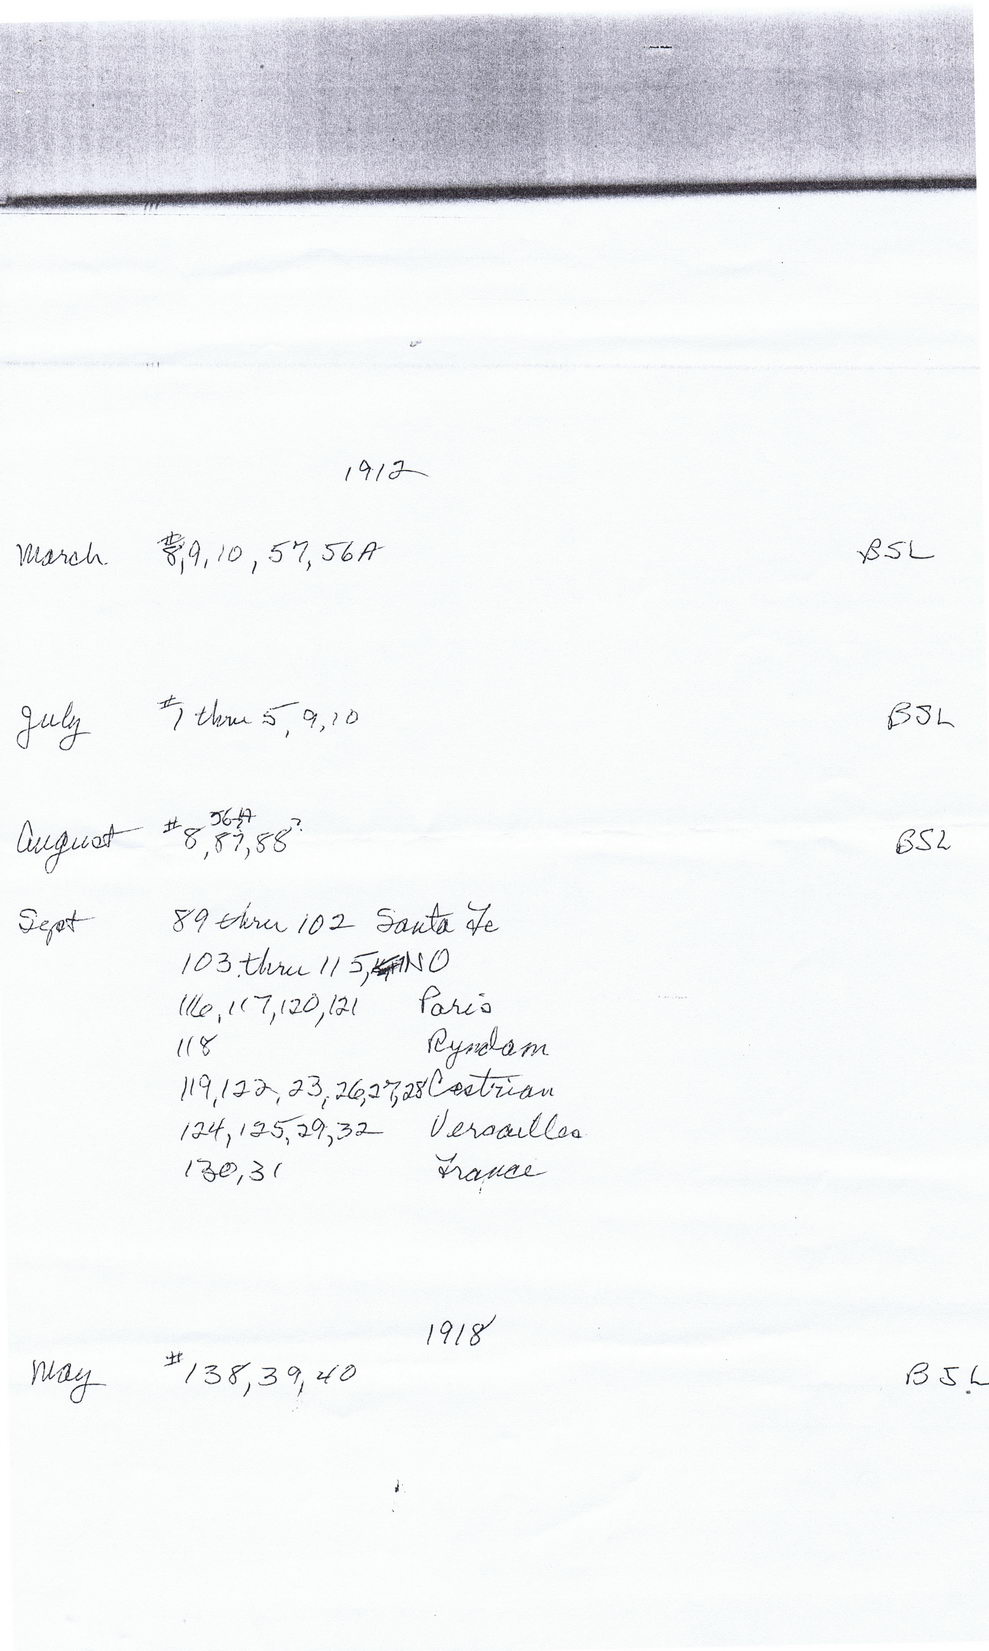 1912
March #8,9,10,57,56A BSL
July #1 thru 5,9,10 BSL
56A
August #8,87,88? BSL
Sept 89 thru 102 Santa Fe
103 thru 115, NO
116,117,120,121 Paris
118 Ryndam
119,122,23,26,27,28 Cestrian
124,125,29,32 Versailles
130,31 France
1918
May #138,39,40 BSL